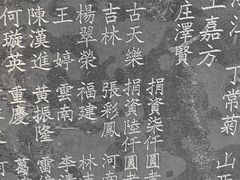 丁常菊 山
嘉方
莊澤賢
捐資柒仟圓者
古天樂 捐資陸仟圓者
吉林 張彩鳳 河南
楊翠榮 福建 林
王婷 雲南 李
陳漢進 黃振隆 雷
何璇英 重慶 葛